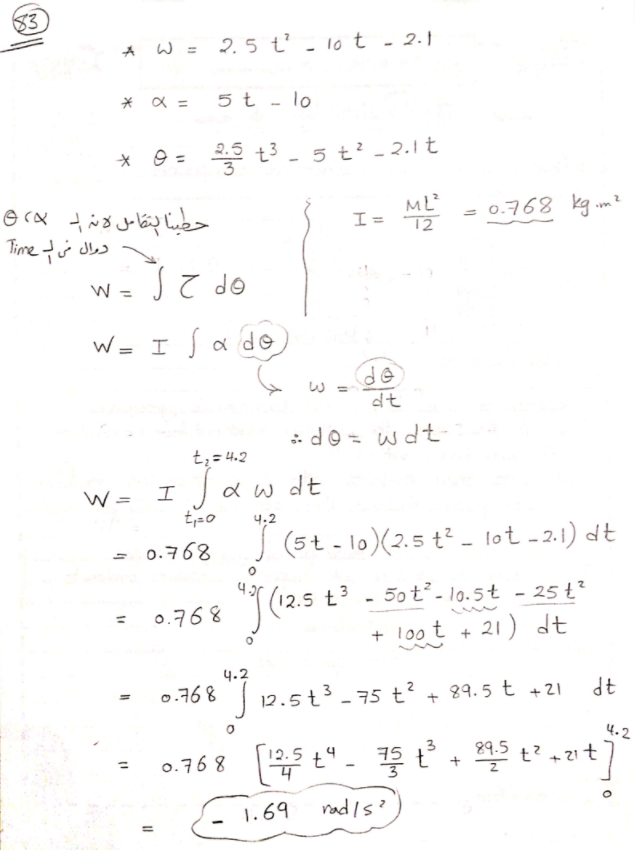 83
* ω = 2.5 t² - 10 t - 2.1
* α = 5 t - 10
* θ = 2.5/3 t³ - 5 t² - 2.1 t
حطينا التكامل لانه الـ θ < α
دوال في الـ Time
I = ML²/12 = 0.768 kg.m²
W = ∫ τ dθ
W = I ∫ α dθ
ω = dθ/dt
∴ dθ = ω dt
t₂=4.2
W = I ∫ α ω dt
t₁=0
= 0.768 ∫₀^4.2 (5t - 10)(2.5 t² - 10t - 2.1) dt
= 0.768 ∫₀^4.2 (12.5 t³ - 50t² - 10.5t - 25 t²
+ 100 t + 21) dt
= 0.768 ∫₀^4.2 12.5t³ - 75 t² + 89.5 t + 21 dt
= 0.768 [12.5/4 t⁴ - 75/3 t³ + 89.5/2 t² + 21 t]₀^4.2
= - 1.69 rad/s²